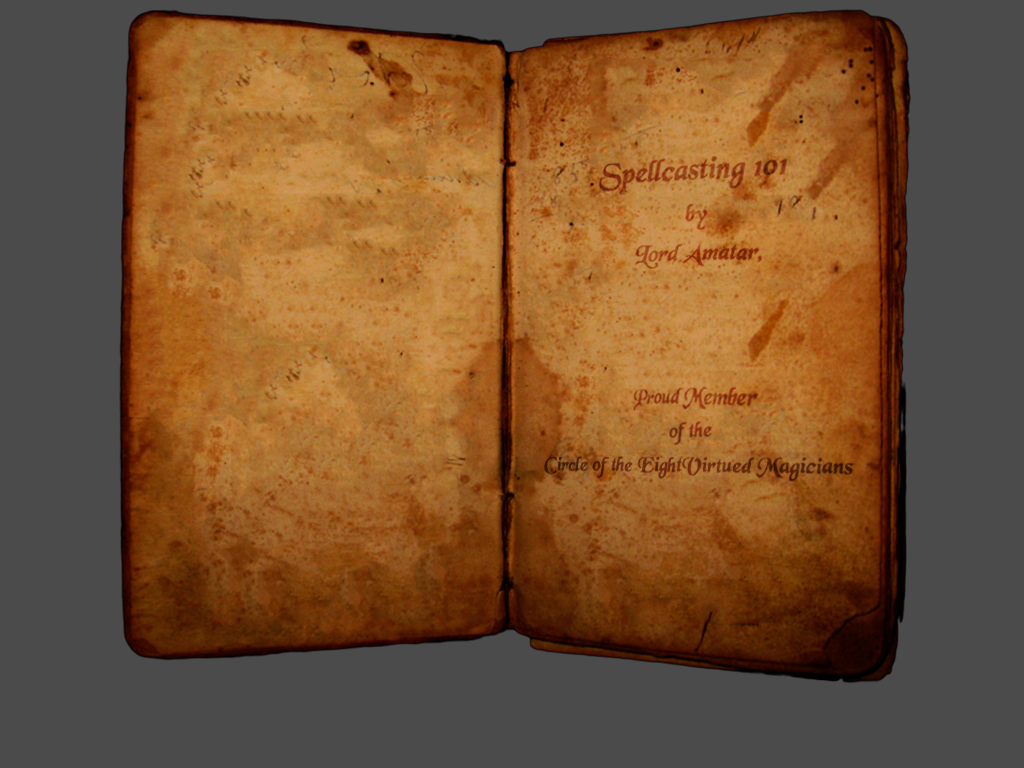 Spellcasting 101
by
Lord Amatar,
Proud Member
of the
Circle of the Eight Virtued Magicians